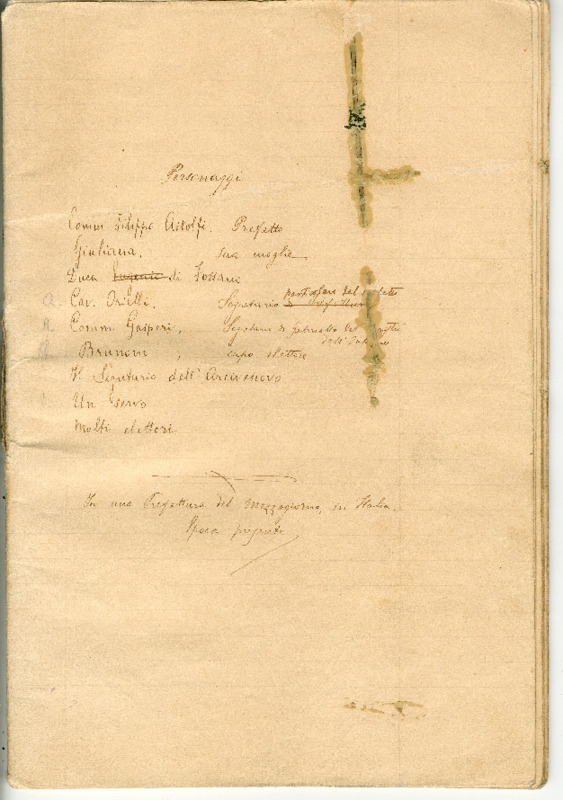 Personaggi
Comm Filippo Astolfi. Prefetto
Giuliana. sua moglie
Duca Eugenio di Fossano
Cav. Orielli. Segretario particolare del prefetto
Comm Gasperi, Segretario
dell'Interno
Brunoni, capo elettore
Il Segretario dell'Arcivescovo
Un servo
Molti elettori
In una Prefettura del mezzogiorno, in Italia.
Epoca presente